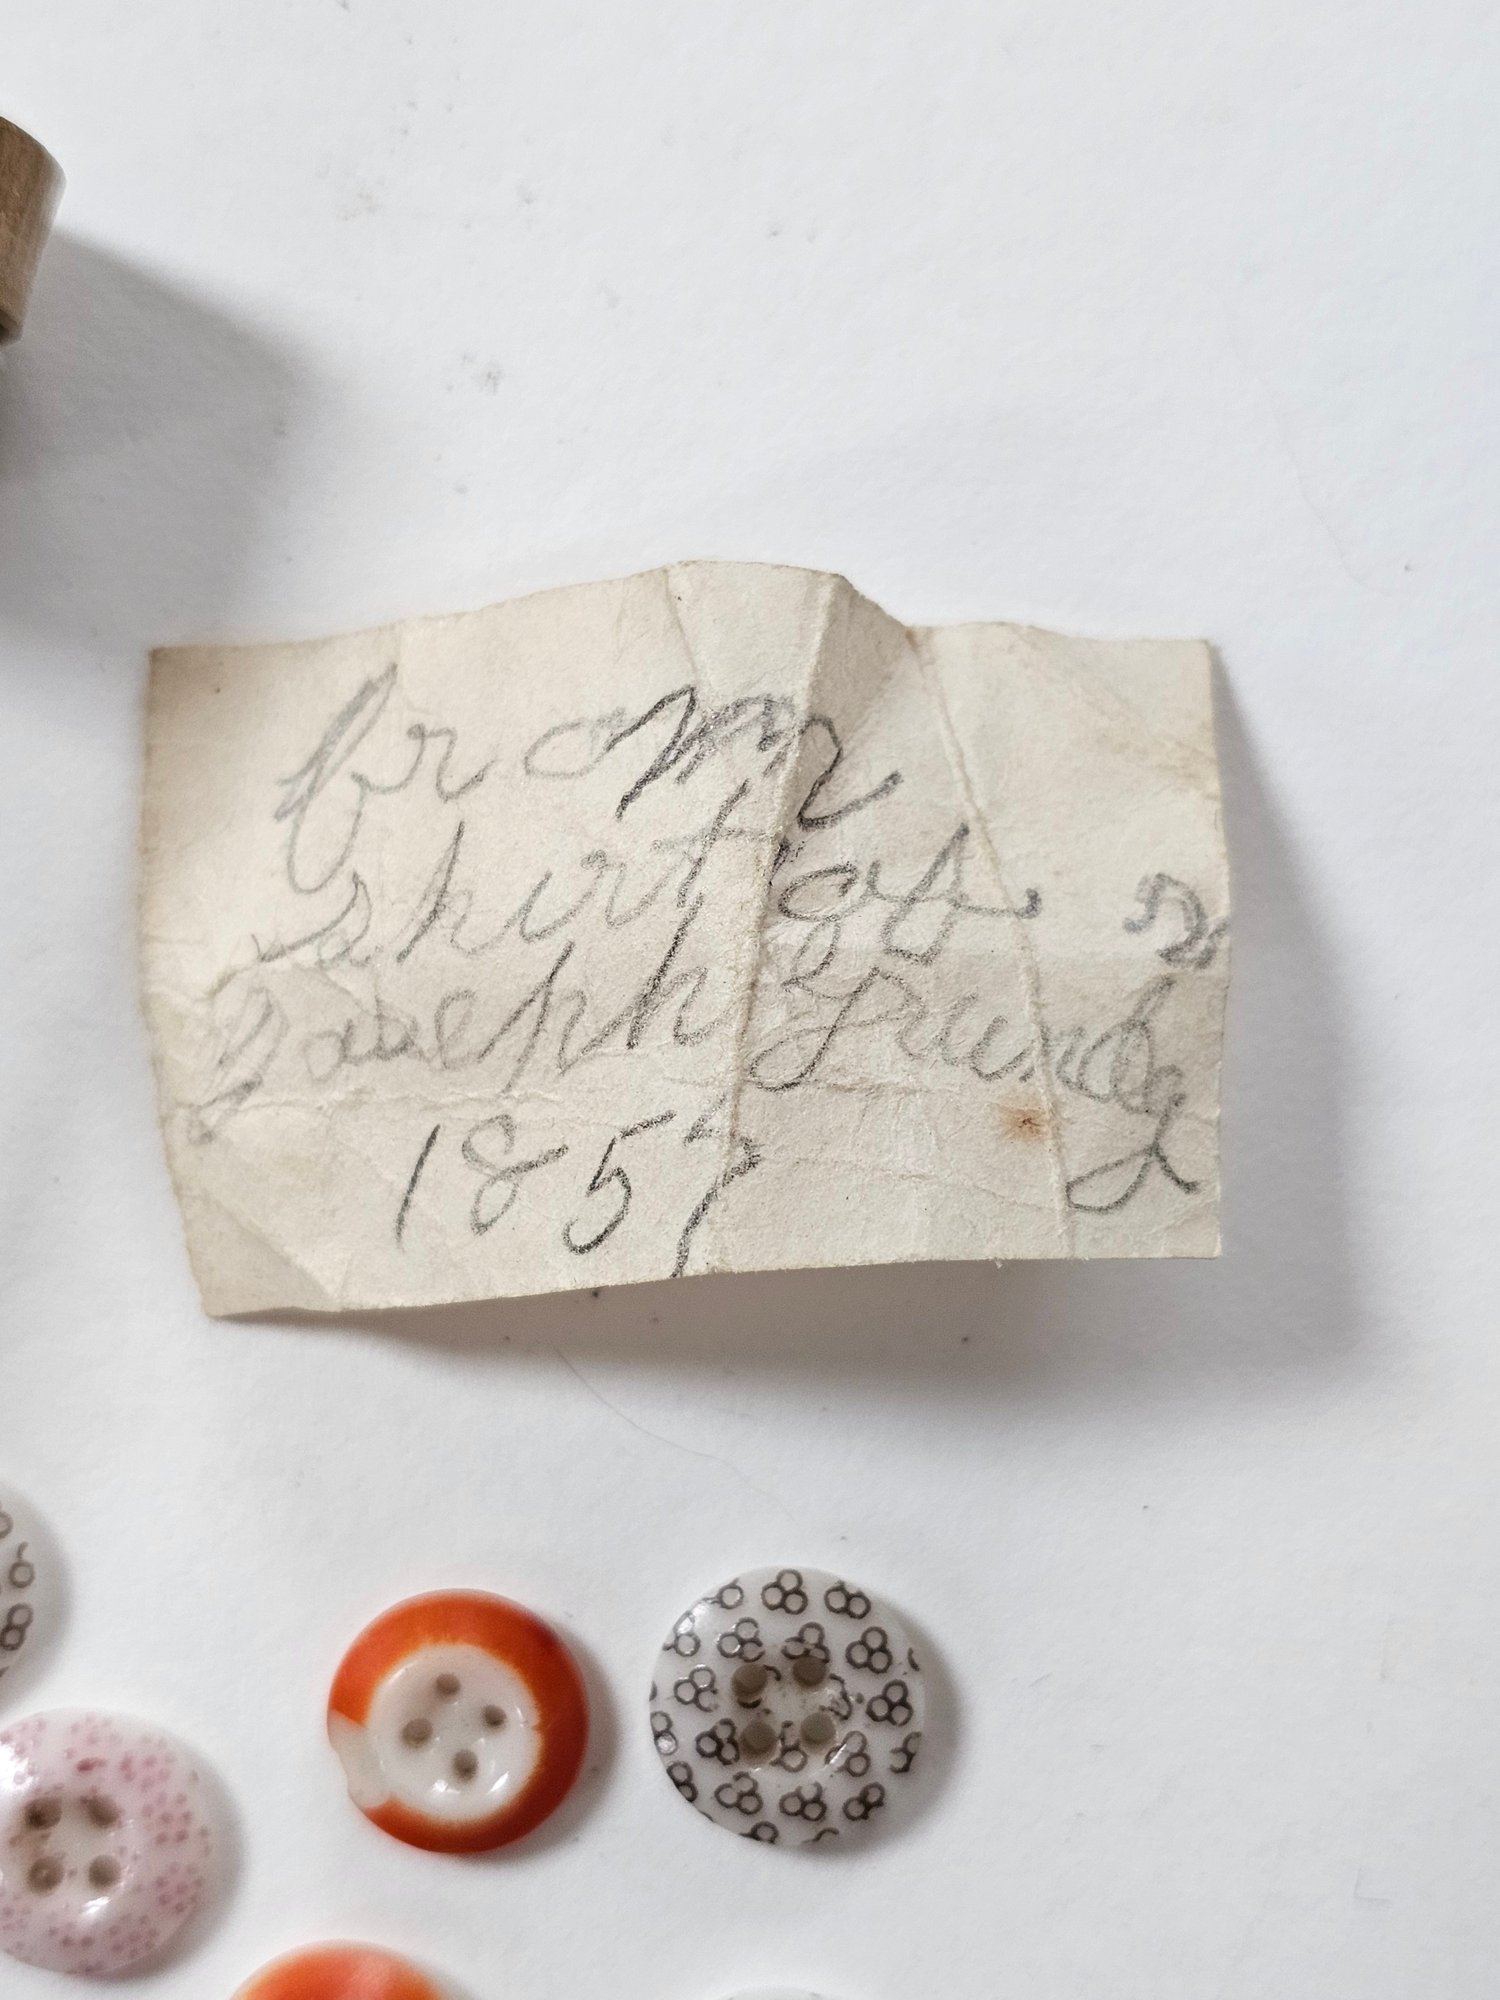 from
shirt of
Joseph Grundy
1857